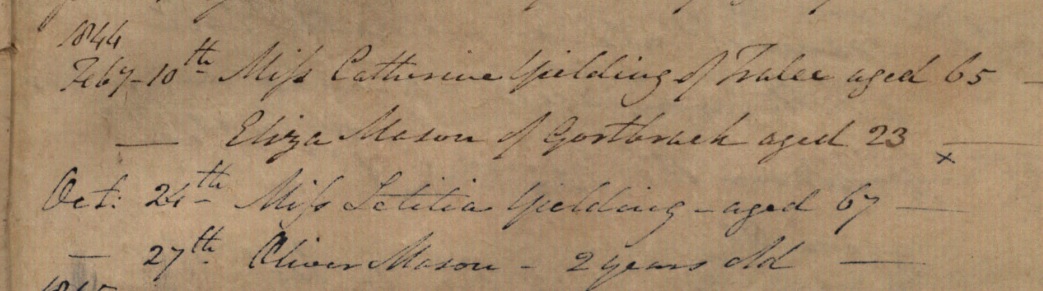 1844
Feby - 10th Miss Catherine Yielding of Tralee aged 65 —
— Eliza Mason of Gortbrack aged 23 —
x
Oct: 24th Miss Letitia Yielding - aged 67 —
— 27th Oliver Mason - 2 years old —
1845